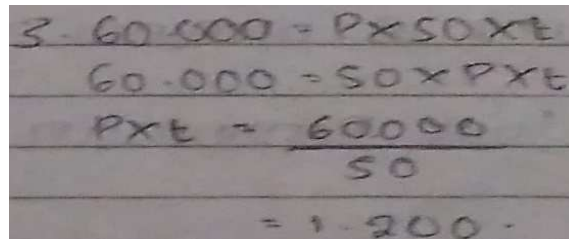 3. 60.000 = P x 50 x t
60.000 = 50 x P x t
P x t = 60000
50
= 1.200.